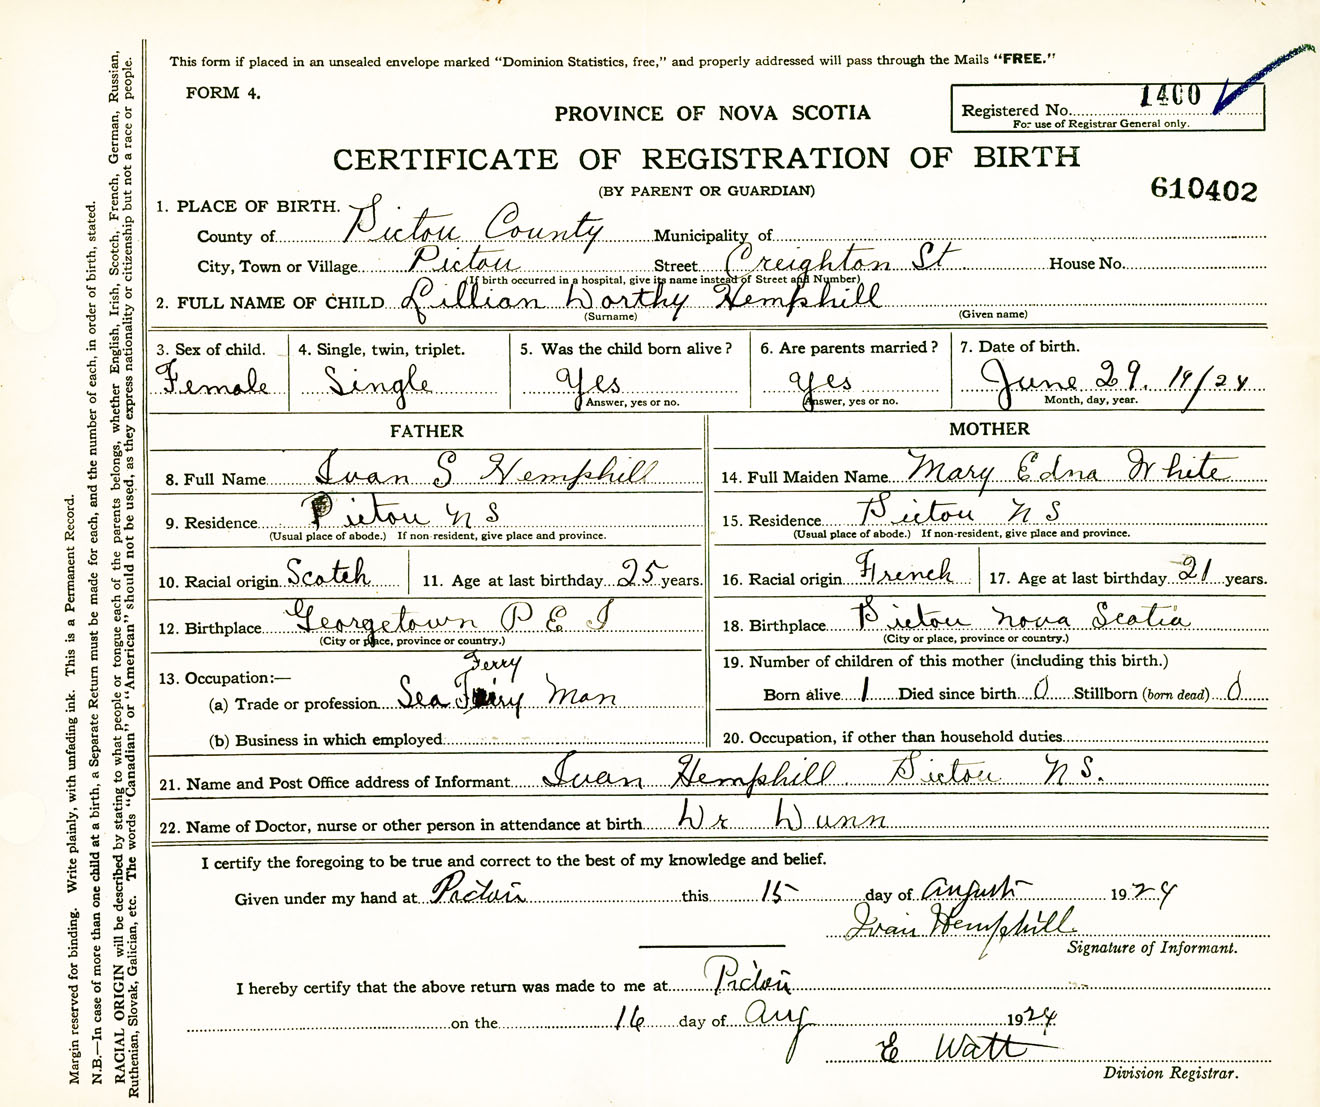 This form if placed in an unsealed envelope marked "Dominion Statistics, free," and properly addressed will pass through the Mails "FREE."
FORM 4.
PROVINCE OF NOVA SCOTIA
Registered No. 1400
For use of Registrar General only.
CERTIFICATE OF REGISTRATION OF BIRTH
(BY PARENT OR GUARDIAN)
610402
1. PLACE OF BIRTH.
County of Pictou County Municipality of
City, Town or Village Pictou Street Creighton St House No.
(If birth occurred in a hospital, give its name instead of Street and Number)
2. FULL NAME OF CHILD Lillian Dorthy Hemphill
(Surname) (Given name)
3. Sex of child. 4. Single, twin, triplet. 5. Was the child born alive? 6. Are parents married? 7. Date of birth.
Female Single Yes Yes June 29. 19/24
Answer, yes or no. Answer, yes or no. Month, day, year.
FATHER MOTHER
8. Full Name Ivan S Hemphill 14. Full Maiden Name Mary Edna White
9. Residence Pictou N S 15. Residence Pictou N S
(Usual place of abode.) If non-resident, give place and province. (Usual place of abode.) If non-resident, give place and province.
10. Racial origin Scotch 11. Age at last birthday 25 years. 16. Racial origin French 17. Age at last birthday 21 years.
12. Birthplace Georgetown P E I 18. Birthplace Pictou Nova Scotia
(City or place, province or country.) (City or place, province or country.)
13. Occupation:— 19. Number of children of this mother (including this birth.)
Ferry
(a) Trade or profession Sea Man Born alive 1 Died since birth 0 Stillborn (born dead) 0
(b) Business in which employed 20. Occupation, if other than household duties
21. Name and Post Office address of Informant Ivan Hemphill Pictou N S.
22. Name of Doctor, nurse or other person in attendance at birth Dr Dunn
I certify the foregoing to be true and correct to the best of my knowledge and belief.
Given under my hand at Pictou this 15 day of August 1924
Ivan Hemphill
Signature of Informant.
I hereby certify that the above return was made to me at Pictou
on the 16 day of Aug 1924
E Watt
Division Registrar.
Margin reserved for binding. Write plainly, with unfading ink. This is a Permanent Record.
N.B.—In case of more than one child at a birth, a Separate Return must be made for each, and the number of each, in order of birth, stated.
RACIAL ORIGIN will be described by stating to what people or tongue each of the parents belongs, whether English, Irish, Scotch, French, German, Russian,
Ruthenian, Slovak, Galician, etc. The words "Canadian" or "American" should not be used, as they express nationality or citizenship but not a race or people.